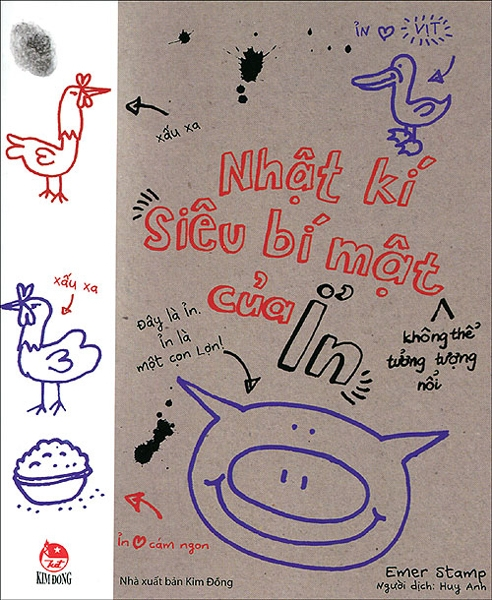 Ỉn ♡ VỊT
xấu xa
Nhật kí
Siêu bí mật
của
Ỉn
không thể
tưởng tượng
nổi
Đây là Ỉn.
Ỉn là
một con Lợn!
xấu xa
Ỉn ♡ cám ngon
KIM ĐỒNG
Nhà xuất bản Kim Đồng
Emer Stamp
Người dịch: Huy Anh